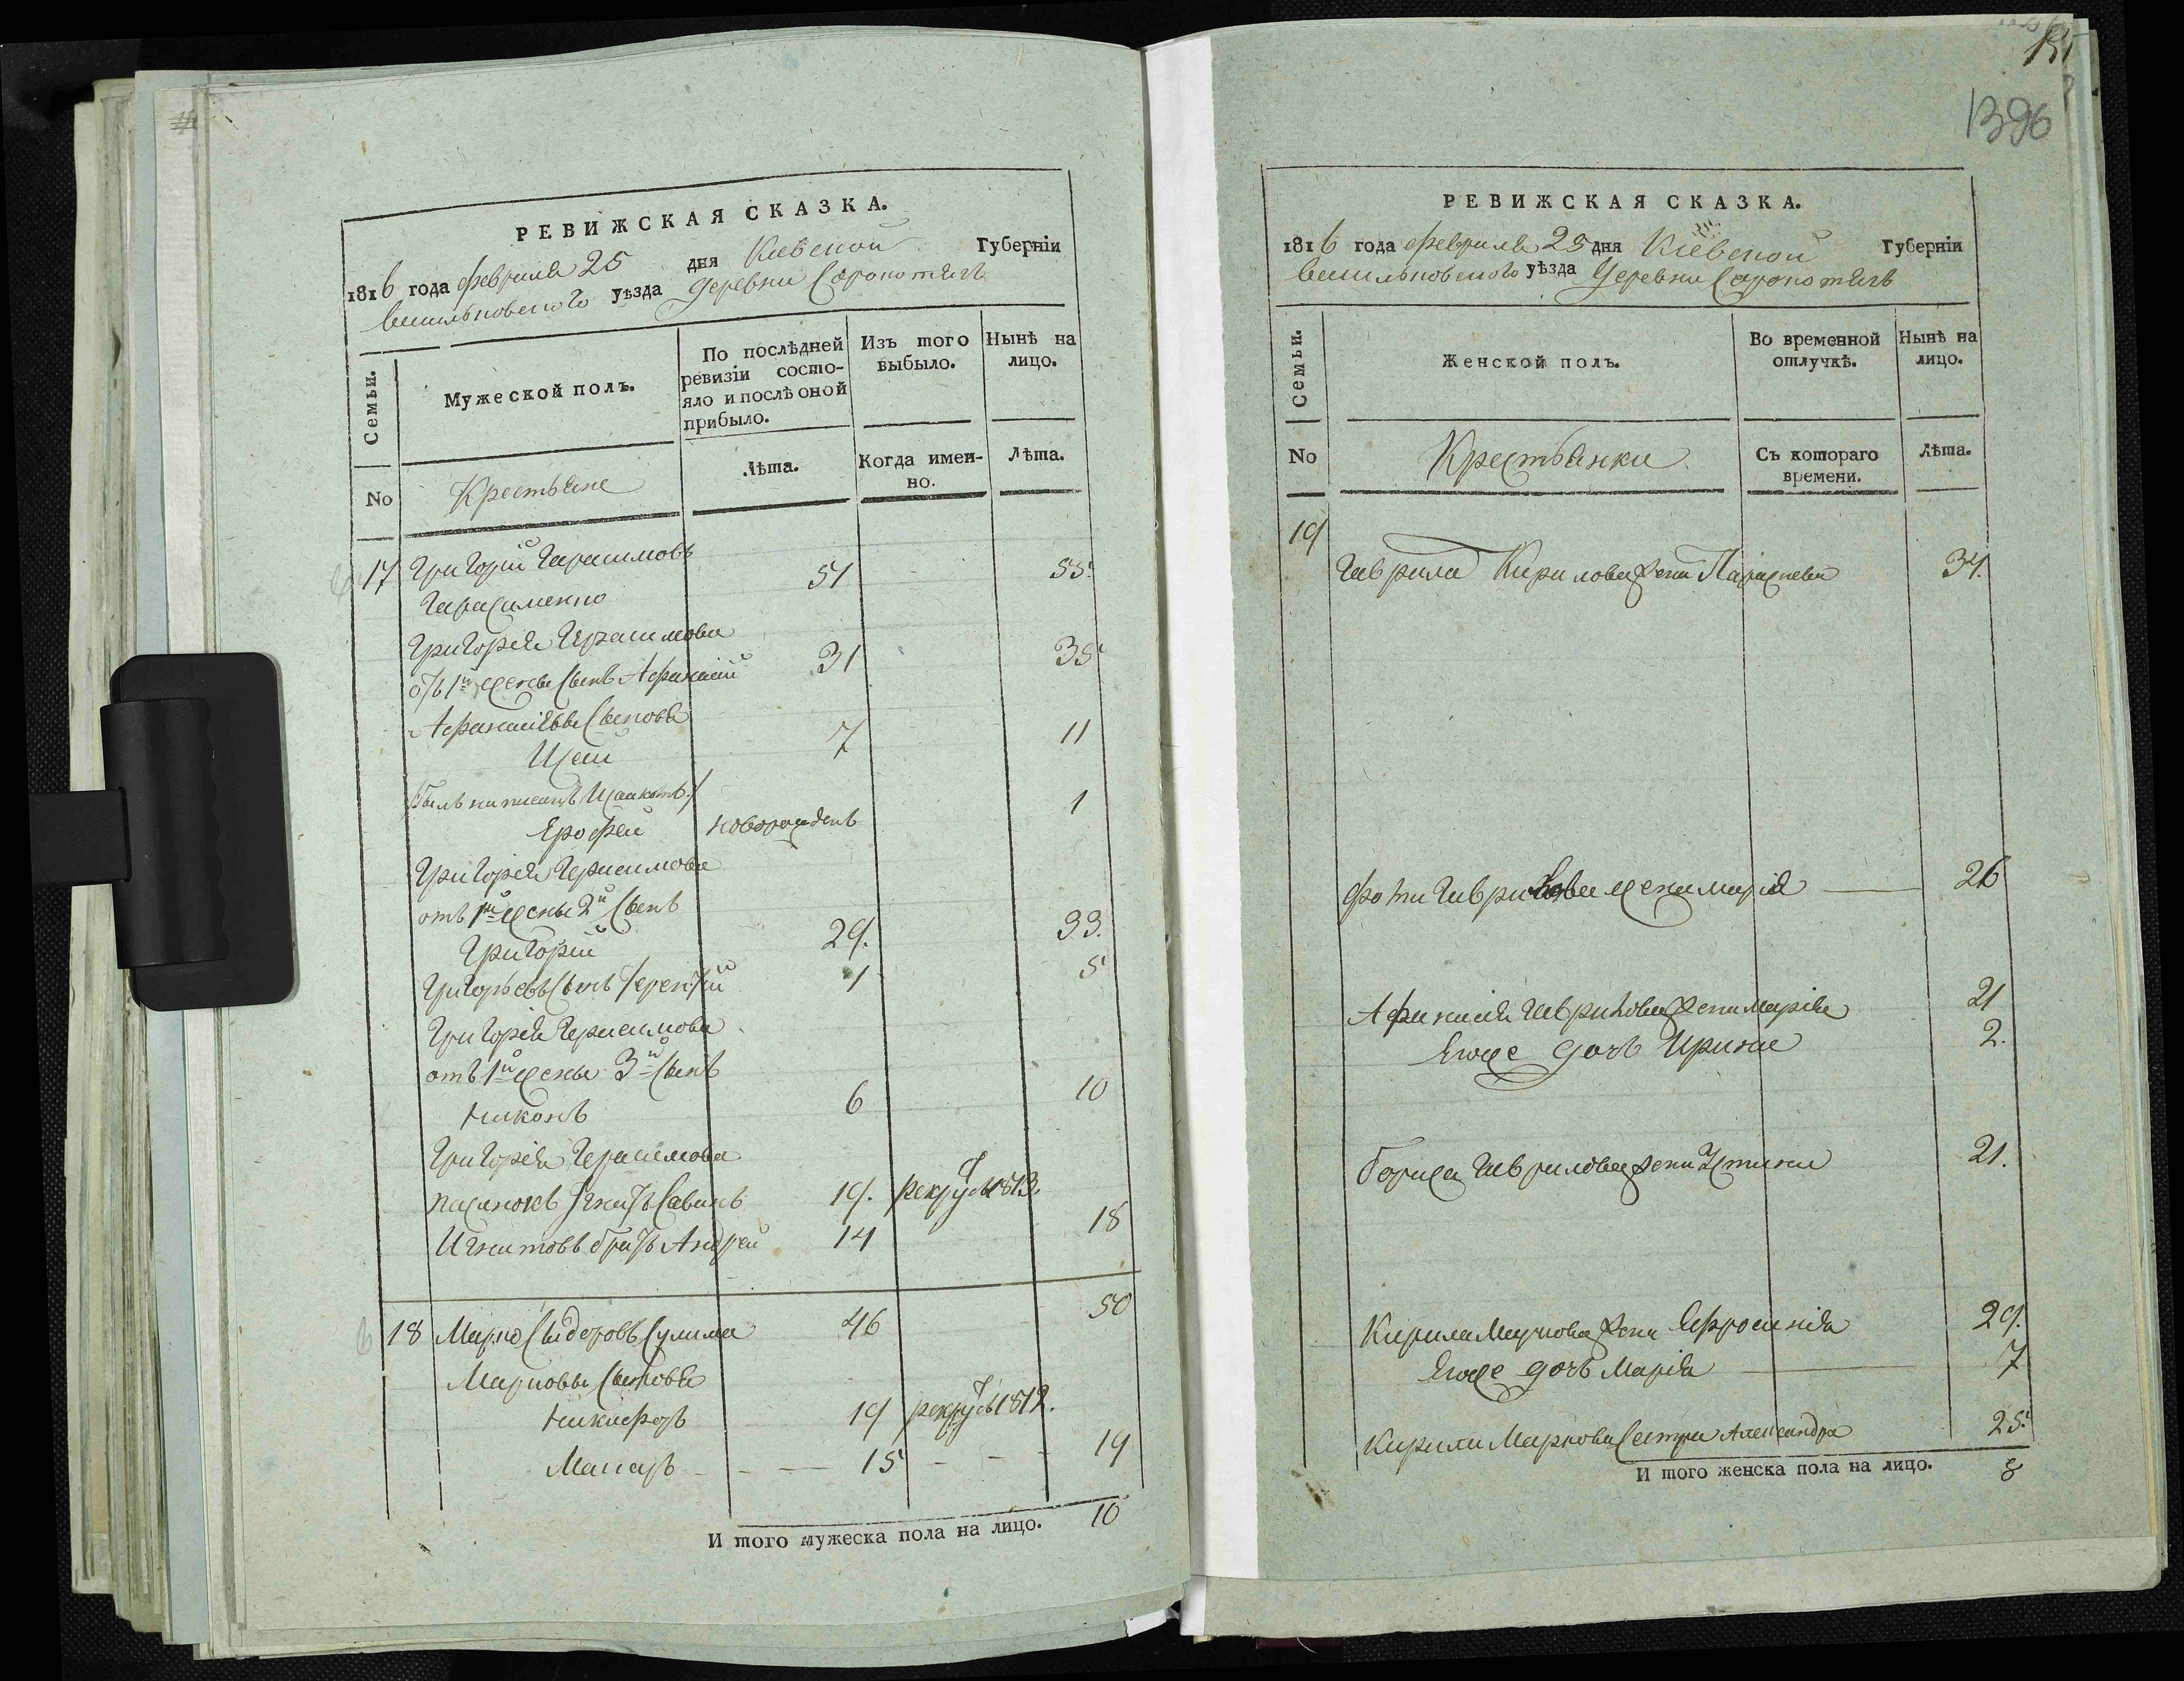 РЕВИЖСКАЯ СКАЗКА.
1816 года февраля 25 дня Киевской Губерніи
Васильковского уѣзда деревни Саропотягъ
Семьи.
Мужеской полъ.
По послѣдней ревизіи состояло и послѣ оной прибыло.
Изъ того выбыло.
Нынѣ на лицо.
No
Крестьяне
Лѣта.
Когда именно.
Лѣта.
17 Григорій Гарасимовъ
Гарасименко 51 55
Григорія Герасимова
отъ 1й жены сынъ Афанасій 31 35
Афанасіевы Сыновья
Исай 7 11
былъ написанъ Исаакомъ
Ерофей новорожденъ 1
Григорія Герасимова
отъ 1й жены 2й сынъ
Григорій 29. 33.
Григорьевъ Сынъ Терентій 1 5
Григорія Герасимова
отъ 1й жены 3й Сынъ
Никонъ 6 10
Григорія Герасимова
пасынокъ Игнатъ Савинъ 19. рекрутъ 1813.
Игнатовъ братъ Андрей 14 18
18 Марко Сидоровъ Сулима 46 50
Марковы Сыновья
Никифоръ 19 рекрутъ 1812.
Макаръ 15 19
И того мужеска пола на лицо. 10
1396
РЕВИЖСКАЯ СКАЗКА.
1816 года февраля 25 дня Кіевской Губерніи
Васильковского уѣзда Деревни Саропотягъ
Семьи.
Женской полъ.
Во временной отлучкѣ.
Нынѣ на лицо.
No
Крестьянки
Съ котораго времени.
Лѣта.
19
Гаврила Кирилова жена Параскева 34.
Фоти Гаврилова жена Марія 26
Афанасія Гаврилова жена Марія 21
Егоже дочь Ирина 2.
Бориса Гаврилова жена Устина 21.
Кирила Маркова жена Ефросинія 29.
Егоже дочь Марія 7
Кирила Маркова Сестра Александра 25.
И того женска пола на лицо. 8